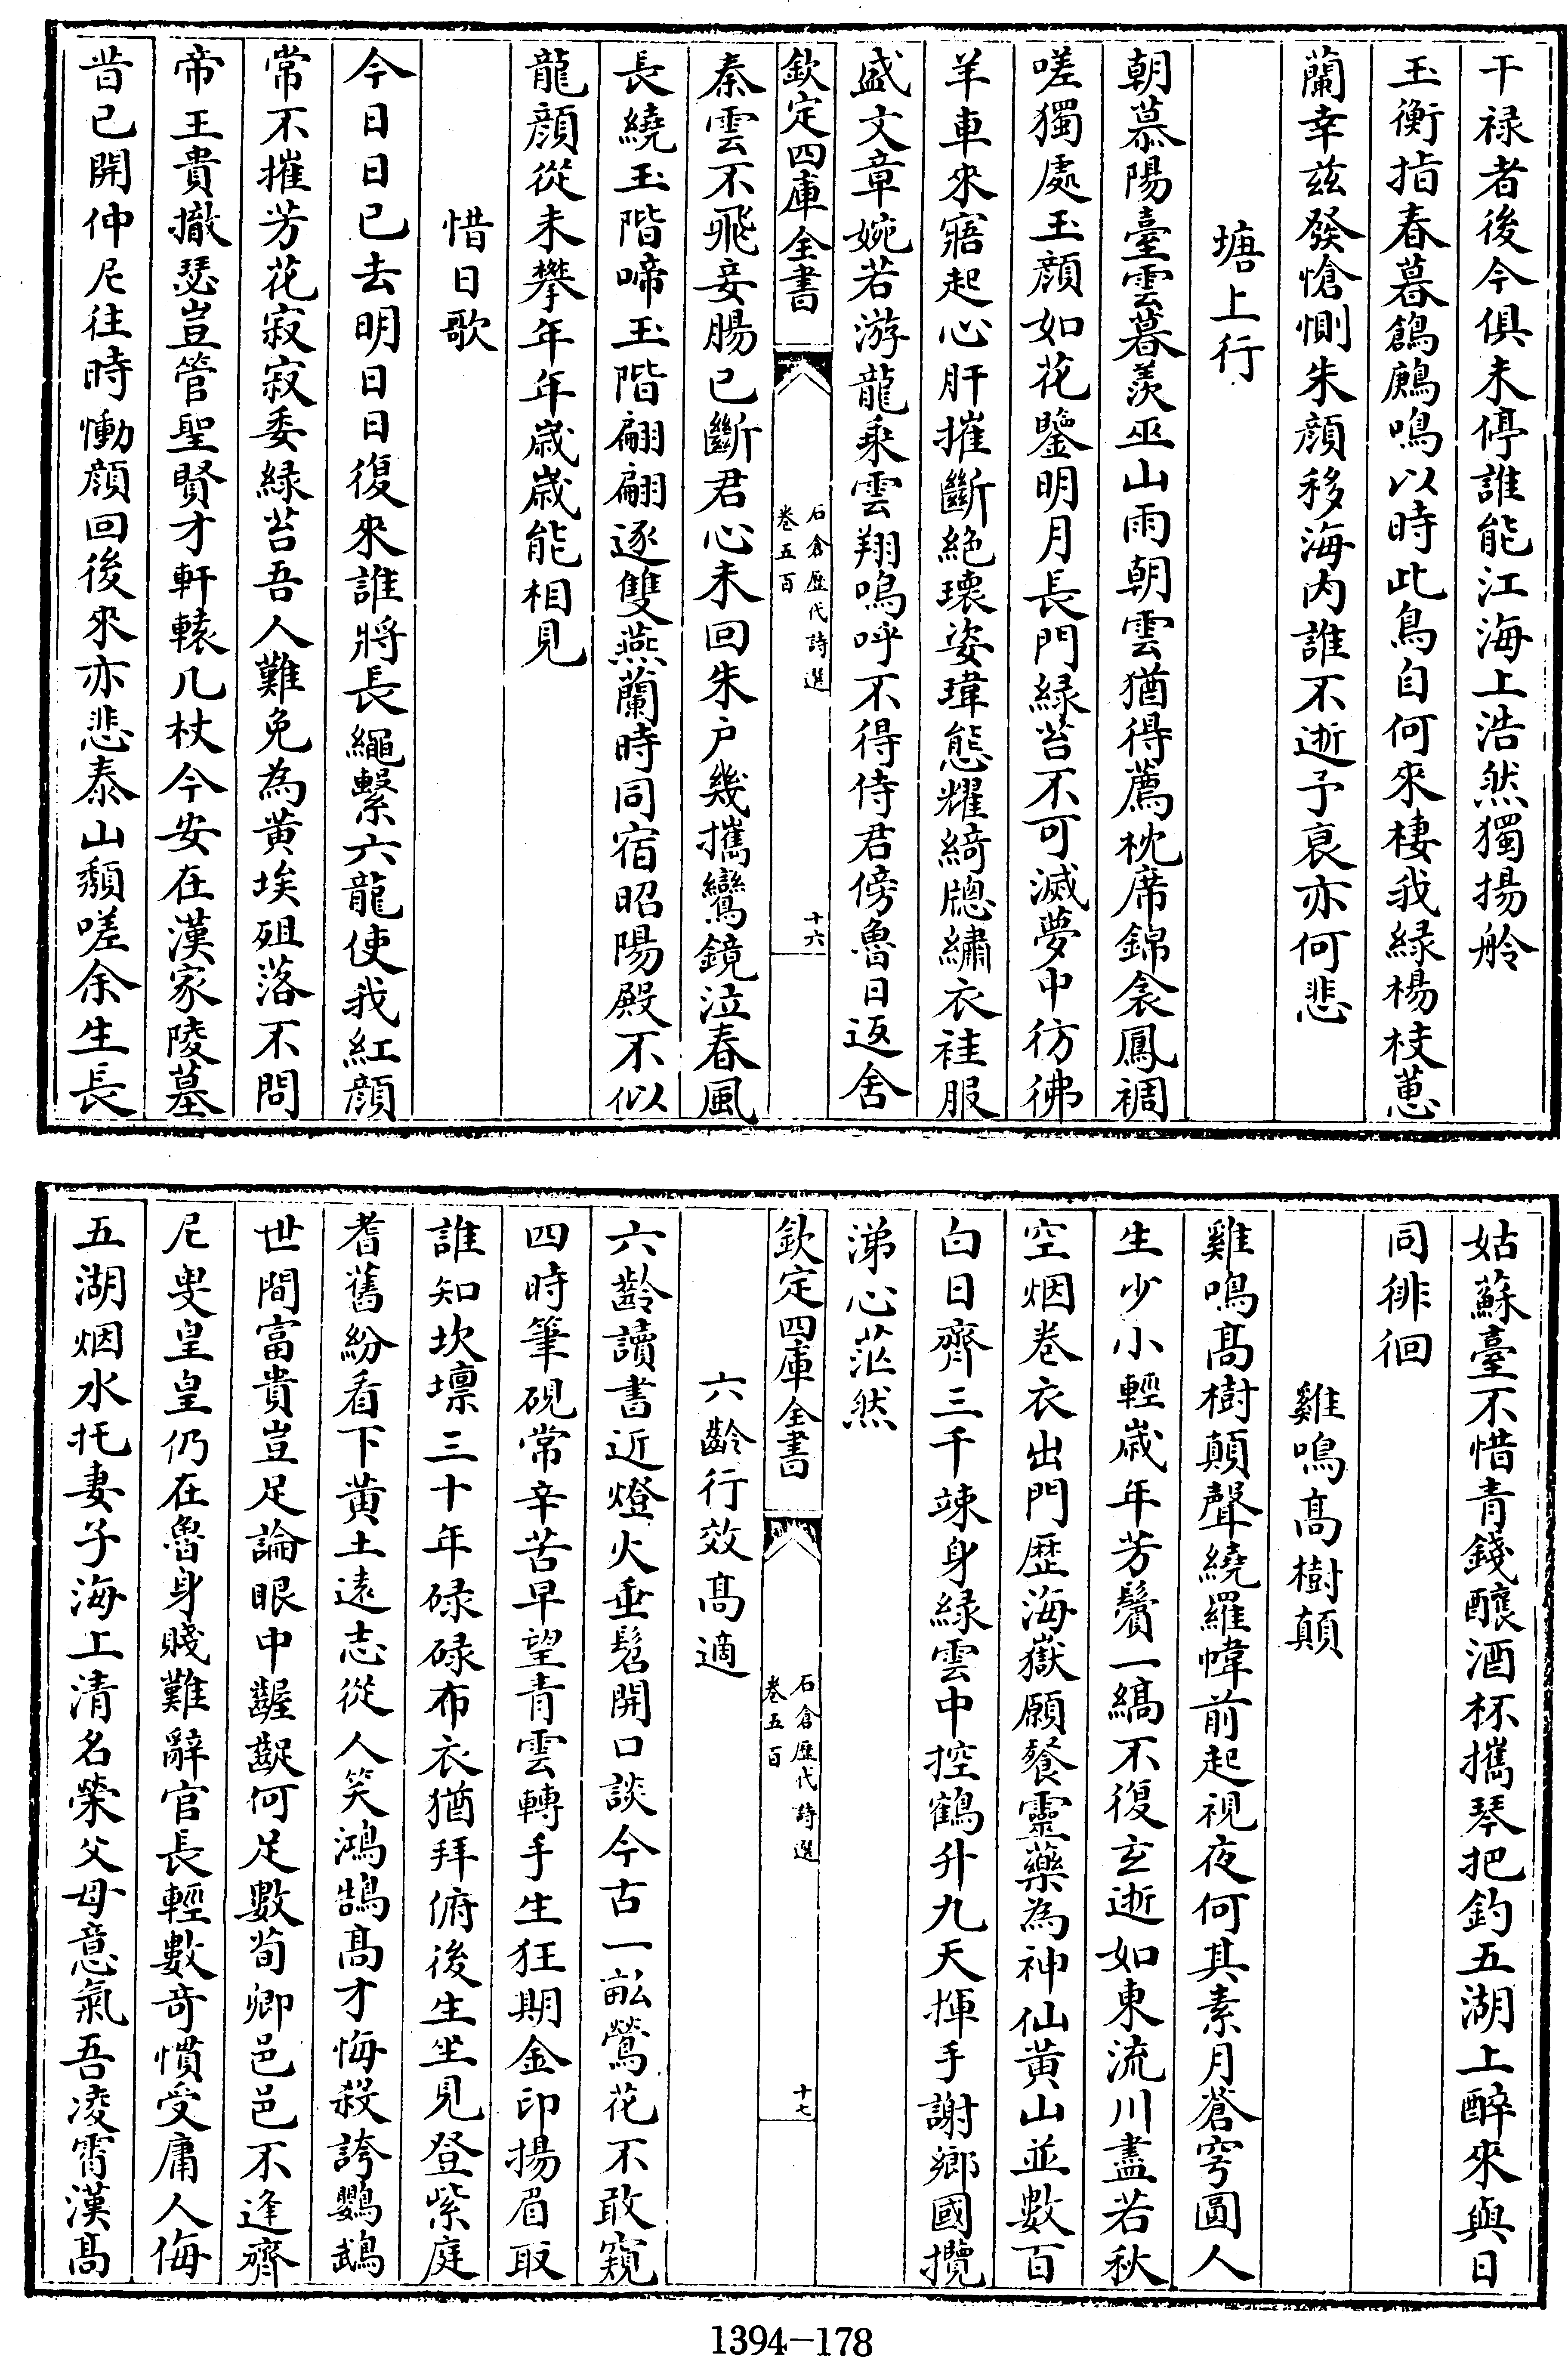 干禄者後今俱未停誰能江海上浩然獨揚舲
玉衡指春暮鶬鶊鳴以時此鳥自何來棲我緑楊枝蕙
蘭幸兹發愴惻朱顔移海内誰不逝予哀亦何悲
塘上行
朝慕陽臺雲暮羨巫山雨朝雲猶得薦枕席錦衾鳳裯
嗟獨處玉顔如花鑒明月長門緑苔不可滅夢中彷彿
羊車來寤起心肝摧斷絶瓌姿瑋態耀綺牕繡衣袿服
盛文章婉若游龍乘雲翔嗚呼不得侍君傍魯日返舍
欽定四庫全書
石倉歷代詩選
卷五百
十六
秦雲不飛妾腸已斷君心未回朱户幾攜鸞鏡泣春風
長繞玉階啼玉階翩翩逐雙燕蘭時同宿昭陽殿不似
龍顔從未攀年年嵗嵗能相見
惜日歌
今日日已去明日日復來誰將長繩繫六龍使我紅顔
常不摧芳花寂寂委緑苔吾人難免為黄埃殂落不問
帝王貴撤瑟豈管聖賢才軒轅几杖今安在漢家陵墓
昔已開仲尼往時慟顔回後來亦悲泰山頽嗟余生長
姑蘇臺不惜青錢釀酒杯攜琴把釣五湖上醉來與日
同徘徊
雞鳴髙樹顛
雞鳴髙樹顛聲繞羅幃前起視夜何其素月蒼穹圓人
生少小輕嵗年芳鬢一縞不復玄逝如東流川盡若秋
空烟巻衣出門歴海嶽願餐靈藥為神仙黄山並數百
白日齊三千竦身緑雲中控鶴升九天揮手謝鄉國攬
涕心茫然
欽定四庫全書
石倉歷代詩選
卷五百
十七
六齡行效髙適
六齡讀書近燈火垂髫開口談今古一畝鶯花不敢窺
四時筆硯常辛苦早望青雲轉手生狂期金印揚眉取
誰知坎壈三十年碌碌布衣猶拜俯後生坐見登紫庭
耆舊紛看下黄土逺志從人笑鴻鵠髙才悔殺誇鸚鵡
世間富貴豈足論眼中齷齪何足數荀卿邑邑不逢齊
尼叟皇皇仍在魯身賤難辭官長輕數竒慣受庸人侮
五湖烟水托妻子海上清名榮父母意氣吾凌霄漢髙
1394-178